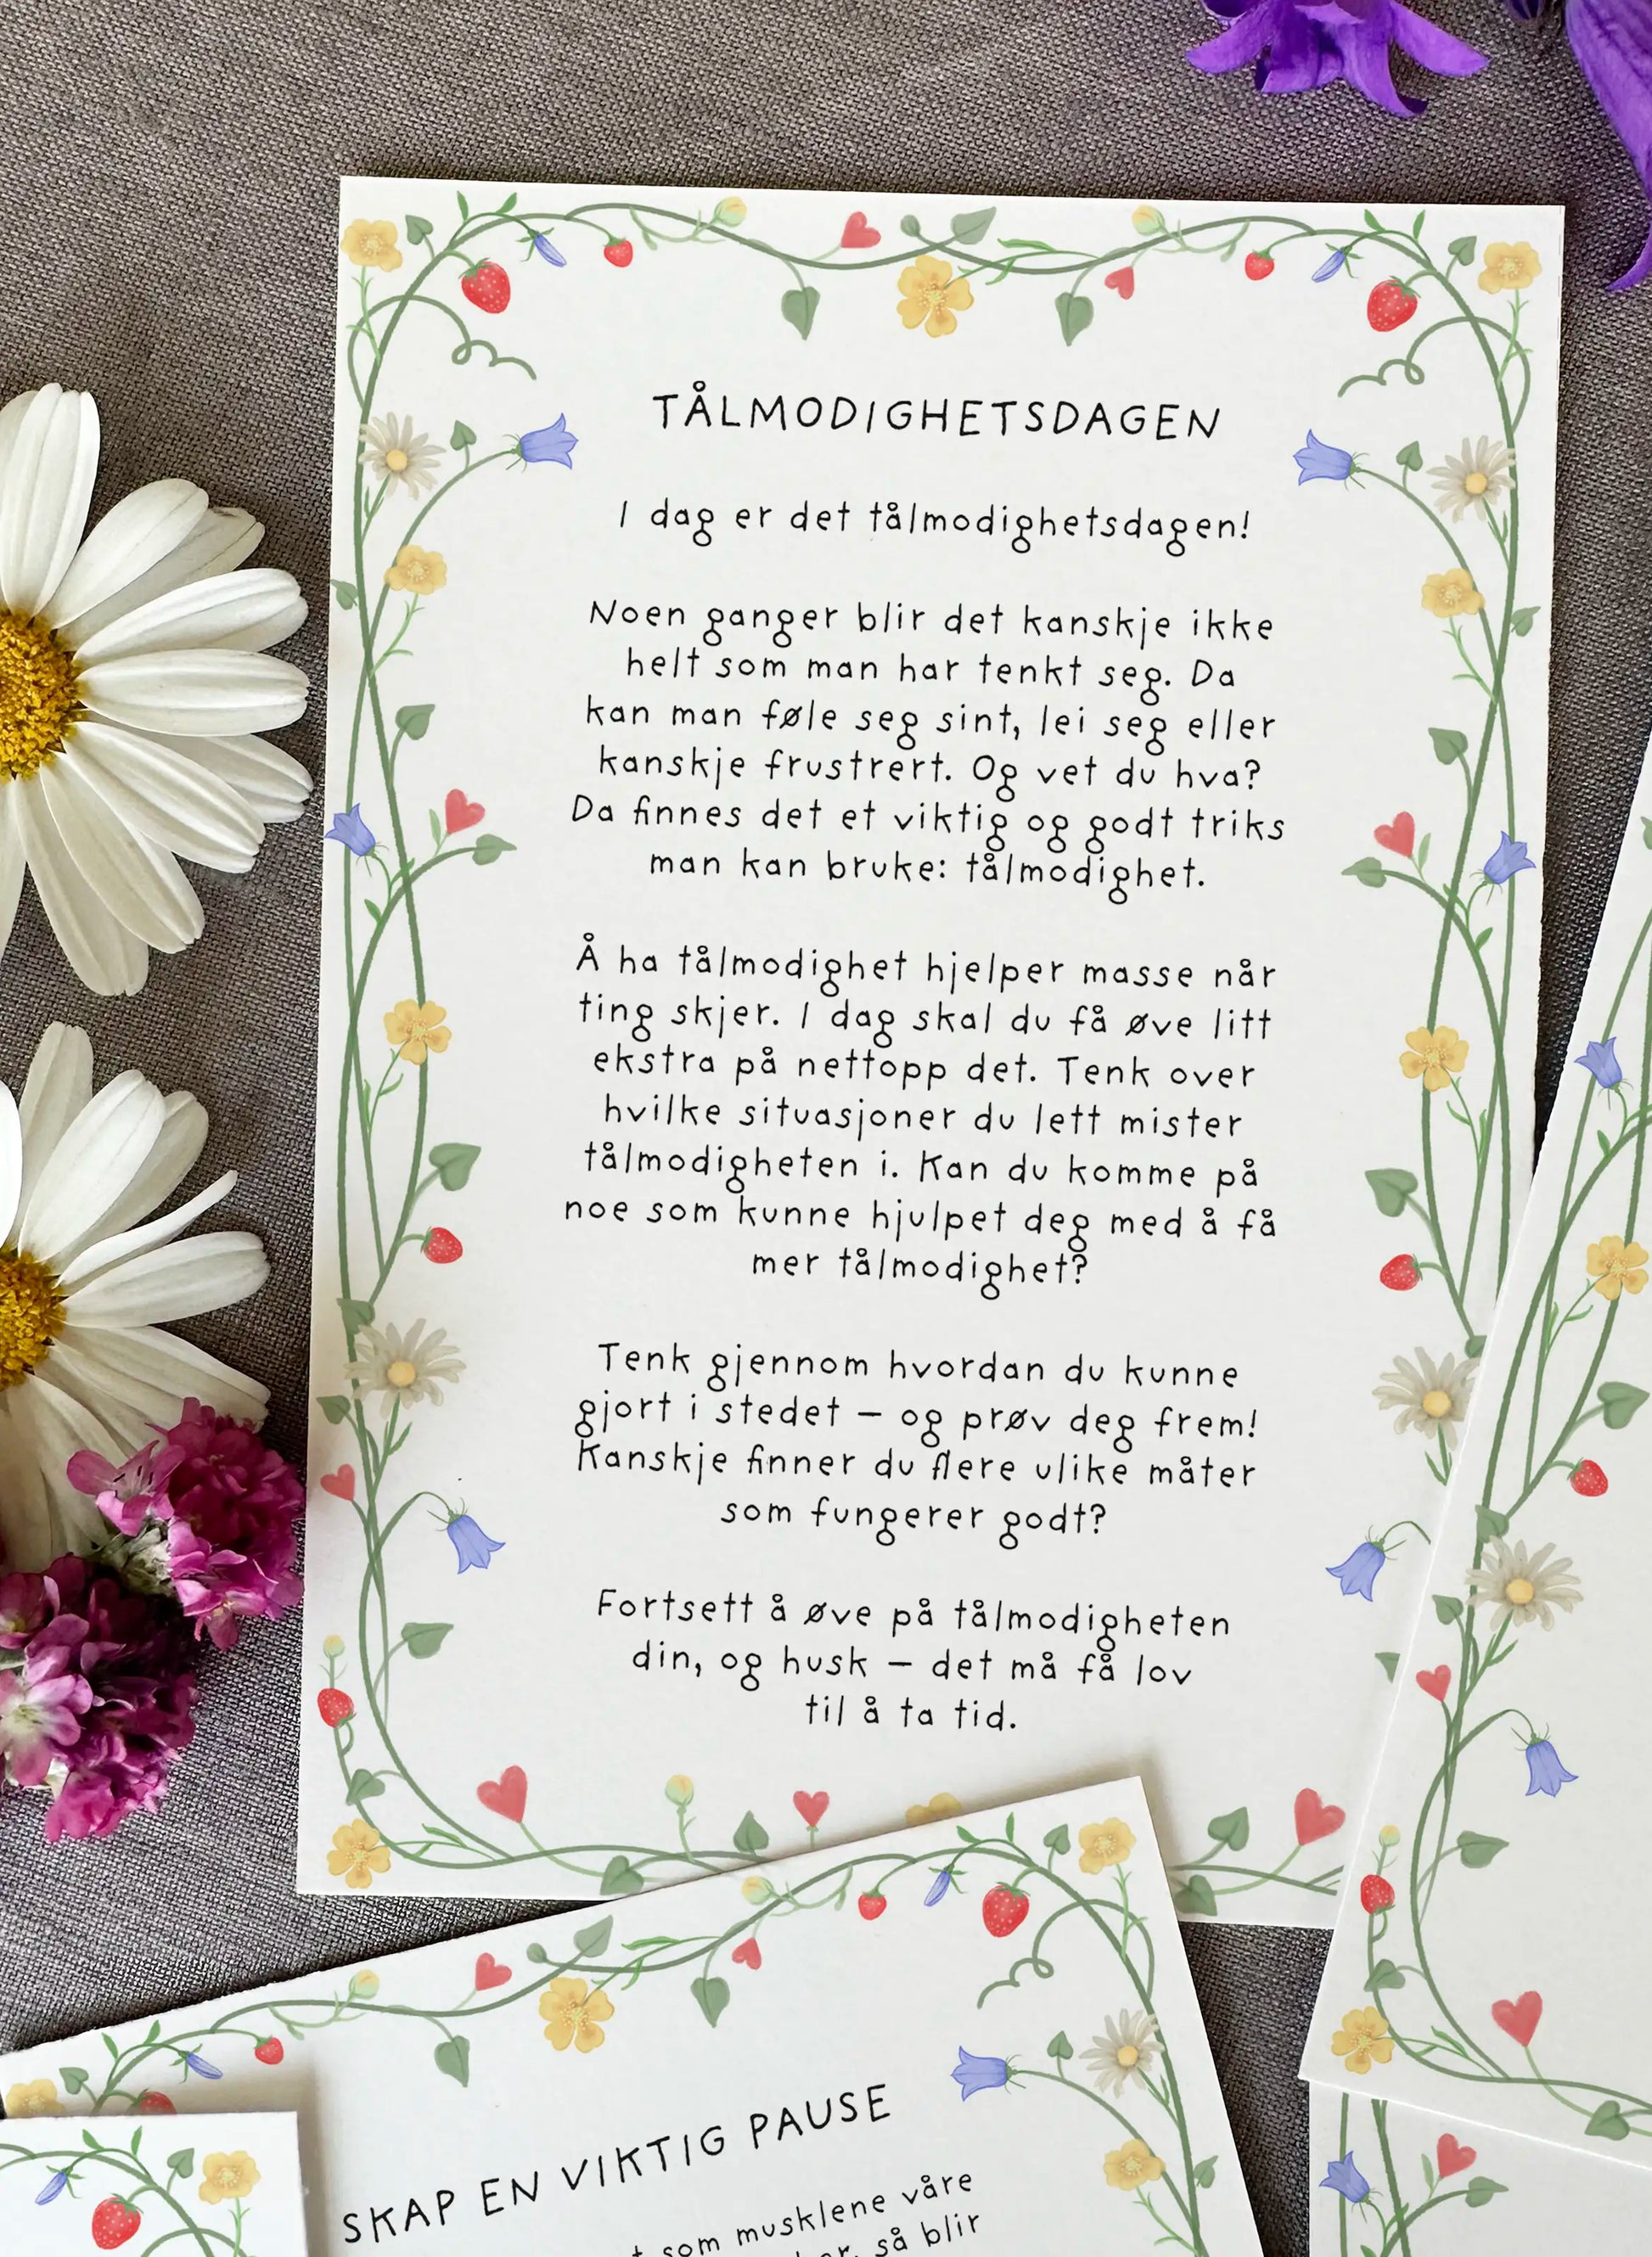 TÅLMODIGHETSDAGEN
I dag er det tålmodighetsdagen!
Noen ganger blir det kanskje ikke
helt som man har tenkt seg. Da
kan man føle seg sint, lei seg eller
kanskje frustrert. Og vet du hva?
Da finnes det et viktig og godt triks
man kan bruke: tålmodighet.
Å ha tålmodighet hjelper masse når
ting skjer. I dag skal du få øve litt
ekstra på nettopp det. Tenk over
hvilke situasjoner du lett mister
tålmodigheten i. Kan du komme på
noe som kunne hjulpet deg med å få
mer tålmodighet?
Tenk gjennom hvordan du kunne
gjort i stedet – og prøv deg frem!
Kanskje finner du flere ulike måter
som fungerer godt?
Fortsett å øve på tålmodigheten
din, og husk – det må få lov
til å ta tid.
SKAP EN VIKTIG PAUSE
som musklene våre
så blir